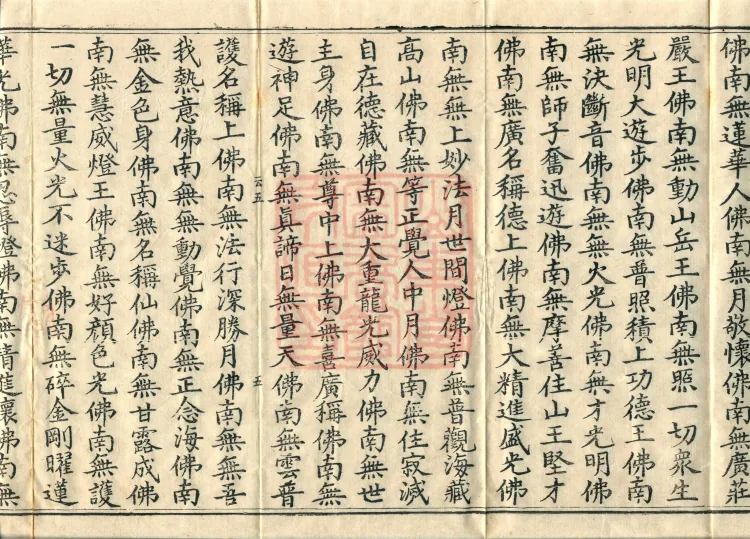 佛南無蓮華人佛南無月敬懷佛南無廣莊
嚴王佛南無動山岳王佛南無照一切衆生
光明大遊步佛南無普照積上功德王佛南
無決斷音佛南無無火光佛南無才光明佛
南無師子奮迅遊佛南無摩善住山王堅才
佛南無廣名稱德上佛南無大精進盛光佛
南無無上妙法月世間燈佛南無普觀海藏
高山佛南無等正覺人中月佛南無住寂滅
自在德藏佛南無大重龍光威力佛南無世
主身佛南無尊中上佛南無喜廣稱佛南無
遊神足佛南無真諦日無量天佛南無雲普
云五
五
護名稱上佛南無法行深勝月佛南無無吾
我熱意佛南無無動覺佛南無正念海佛南
無金色身佛南無名稱仙佛南無甘露成佛
南無慧威燈王佛南無好顏色光佛南無護
一切無量火光不迷步佛南無碎金剛曜蓮
華光佛南無忍辱燈佛南無精進懷佛南無